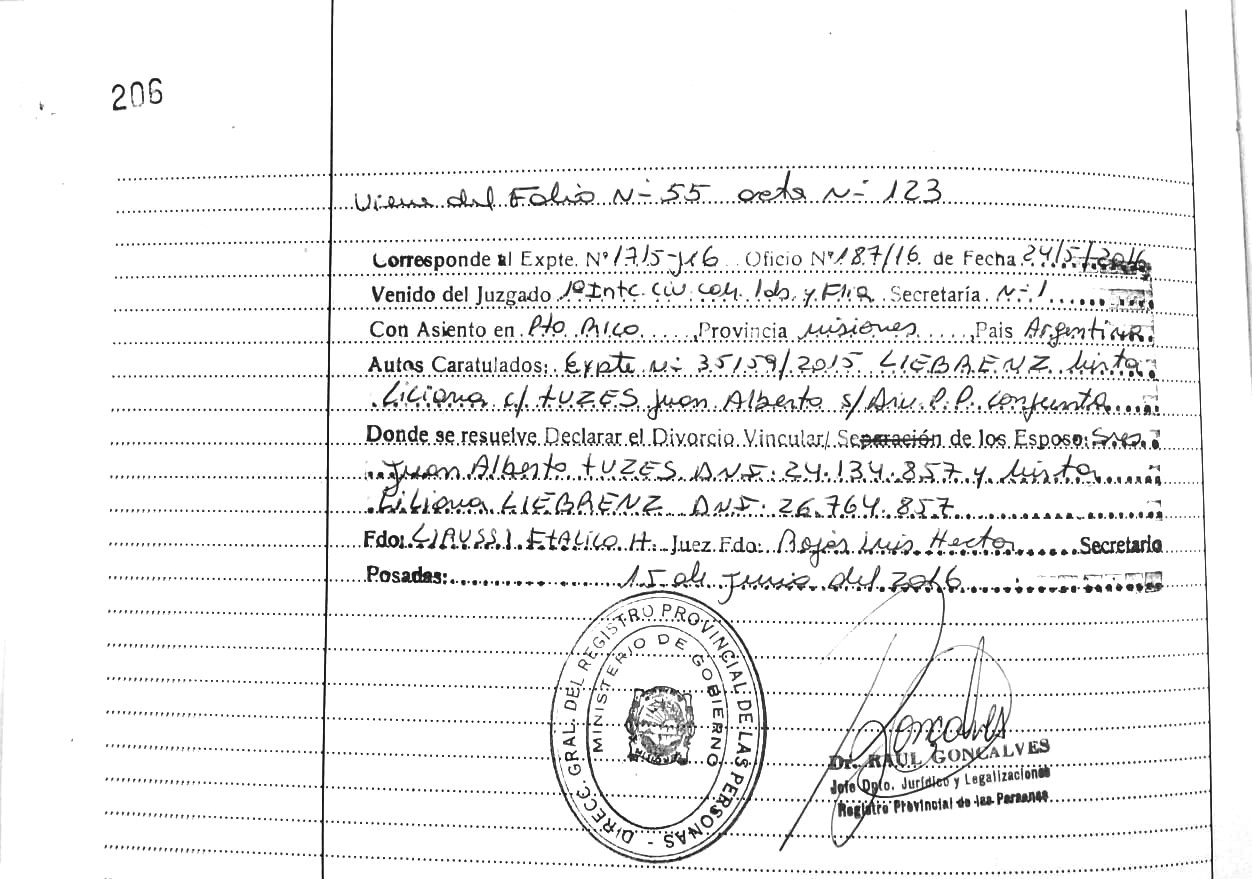 206
Viene del Folio Nº 55 acta Nº 123
Corresponde al Expte. Nº 1715-J-16 Oficio Nº 187/16 de Fecha 24/5/2016
Venido del Juzgado 1º Inst. Civ. Com. Lab. y Flia Secretaría Nº 1
Con Asiento en Pto Rico, Provincia Misiones, Pais Argentina.
Autos Caratulados: Expte Nº 35159/2015 LIEBRENZ Mirta
Liliana c/ TUZES Juan Alberto s/ Div. P.P. conjunta
Donde se resuelve Declarar el Divorcio Vincular/ Separación de los Esposo: Sres.
Juan Alberto TUZES DNI: 24.134.857 y Mirta
Liliana LIEBRENZ DNI: 26.764.857
Fdo: Italico H. Juez. Fdo: Rojas Luis Hector Secretario
Posadas: 15 de Junio del 2016
DIRECC. GRAL. DEL REGISTRO PROVINCIAL DE LAS PERSONAS -
MINISTERIO DE GOBIERNO
MISIONES
Goncalves
Dr. RAUL GONCALVES
Jefe Dpto. Jurídico y Legalizaciones
Registro Provincial de las Personas